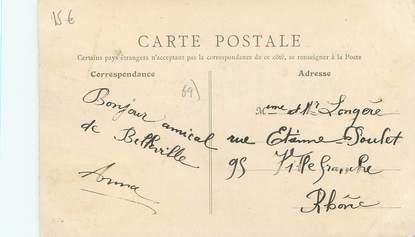 15 €
CARTE POSTALE
Certains pays étrangers n'acceptant pas la correspondance de ce côté, se renseigner à la Poste
Correspondance
Adresse
69)
Bonjour amical
de Belleville
Anna
Mme et Mr Longère
rue Etienne Poulet
95 Villefranche
Rhône